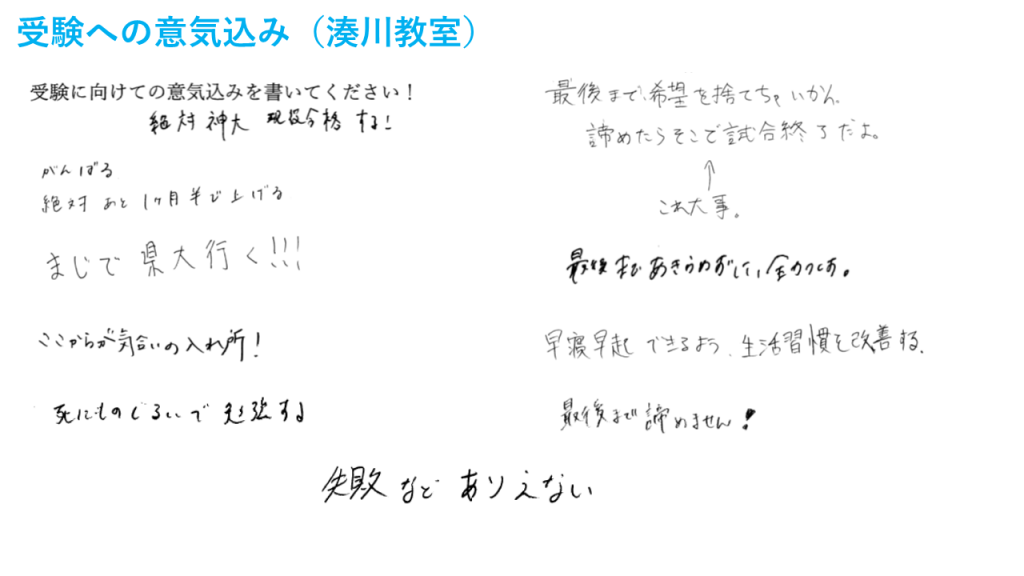 受験への意気込み（湊川教室）
受験に向けての意気込みを書いてください！
絶対 神大 現役合格 する！
がんばる
絶対 あと 1ヶ月半で上げる
まじで 県大行く!!!
ここからが気合いの入れ所！
死にものぐるいで 勉強する
最後まで、希望を捨てちゃいかん。
諦めたらそこで試合終了だよ。
↑
これ大事。
最後まであきらめずに、全力つくす。
早寝早起できるよう、生活習慣を改善する、
最後まで諦めません！
失敗などありえない